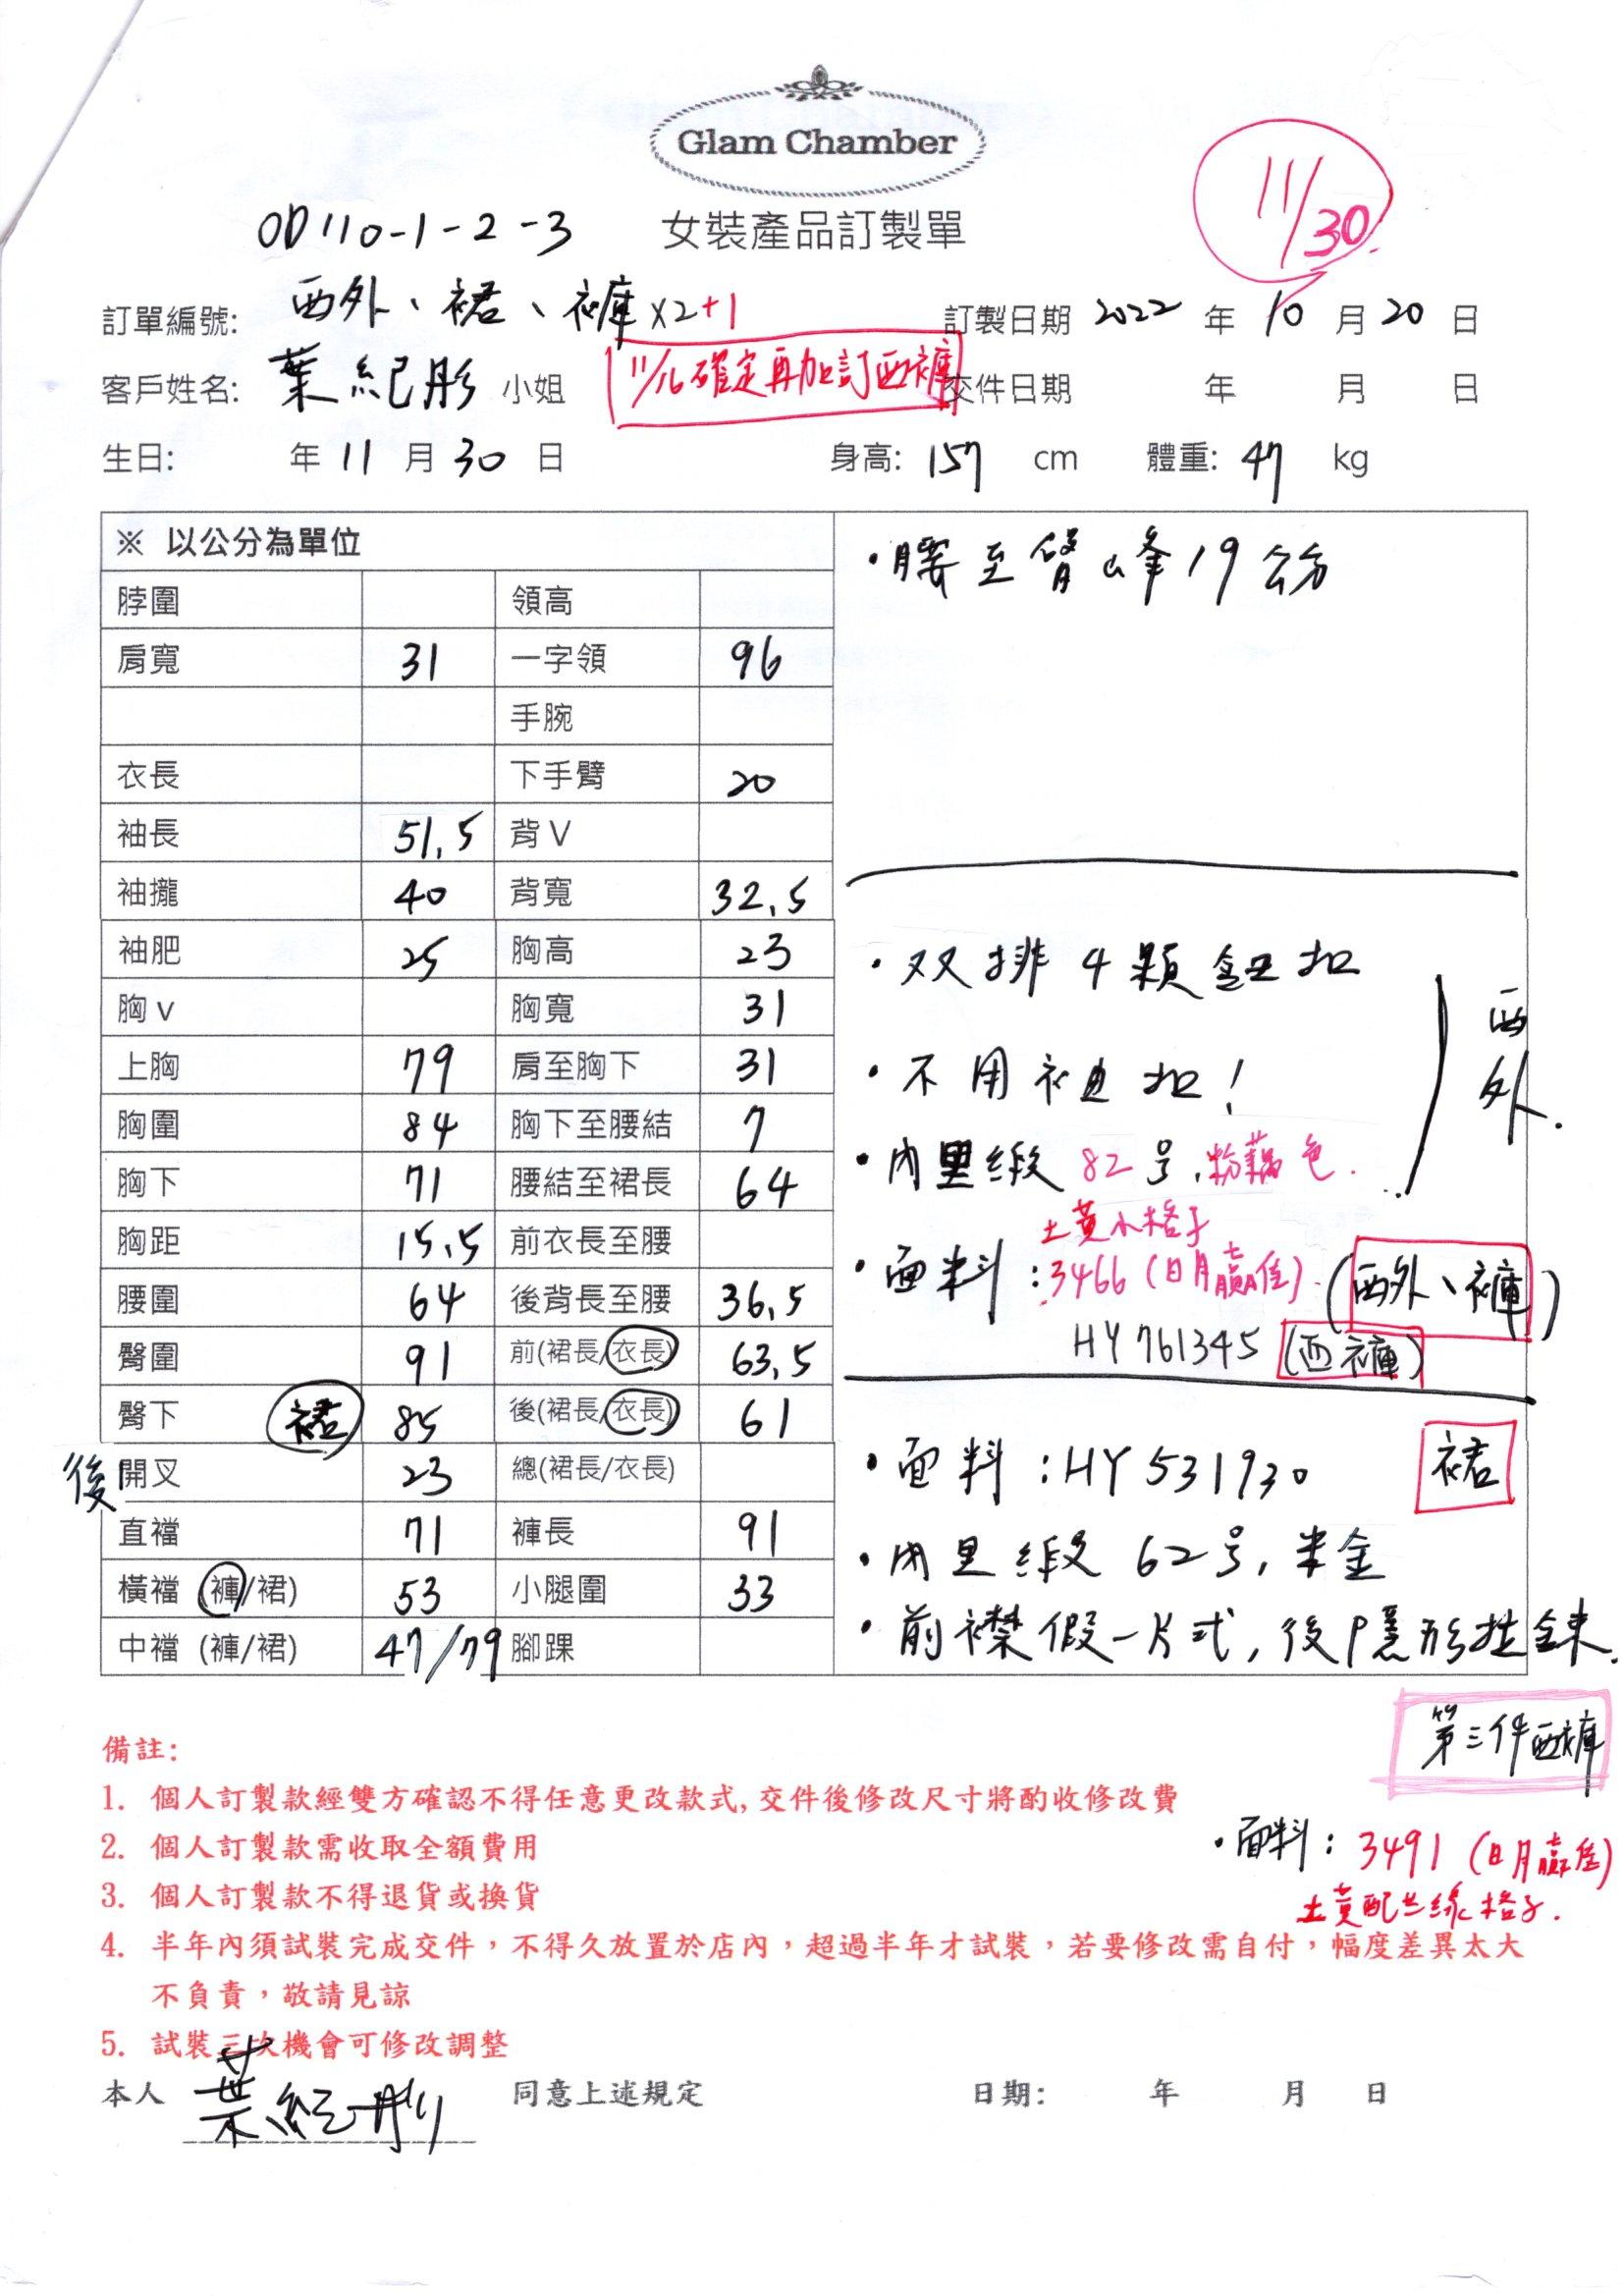 Glam Chamber
11/30
OD110-1-2-3 女裝產品訂製單
訂單編號: 西外、裙、褲x2+1 訂製日期 2022 年 10 月 20 日
客戶姓名: 葉紀彤 小姐 11/16確定再加訂西褲 交件日期 年 月 日
生日: 年 11 月 30 日 身高: 157 cm 體重: 47 kg
※ 以公分為單位
脖圍 領高
肩寬 31 一字領 96
手腕
衣長 下手臂 20
袖長 51.5 背V
袖攏 40 背寬 32.5
袖肥 25 胸高 23
胸v 胸寬 31
上胸 79 肩至胸下 31
胸圍 84 胸下至腰結 7
胸下 71 腰結至裙長 64
胸距 15.5 前衣長至腰
腰圍 64 後背長至腰 36.5
臀圍 91 前(裙長/衣長) 63.5
臀下 裙 85 後(裙長/衣長) 61
後 開叉 23 總(裙長/衣長)
直襠 71 褲長 91
橫襠 (褲/裙) 53 小腿圍 33
中襠 (褲/裙) 47/79 腳踝
・腰至臀峰19公分
・双排4顆鈕扣
・不用袖扣!
西外.
・內里緞 82号,粉藕色.
土黃小格子
・面料:3466(日月贏佳).(西外、褲)
HY761345(西褲)
・面料:HY531930 裙
・內里緞 62号,米金
・前襟假一片式,後隱形拉鍊.
第三件西褲
・面料:3491(日月贏佳)
土黃配丝線格子.
備註:
1. 個人訂製款經雙方確認不得任意更改款式,交件後修改尺寸將酌收修改費
2. 個人訂製款需收取全額費用
3. 個人訂製款不得退貨或換貨
4. 半年內須試裝完成交件,不得久放置於店內,超過半年才試裝,若要修改需自付,幅度差異太大
不負責,敬請見諒
5. 試裝三次機會可修改調整
本人 葉紀彤 同意上述規定 日期: 年 月 日